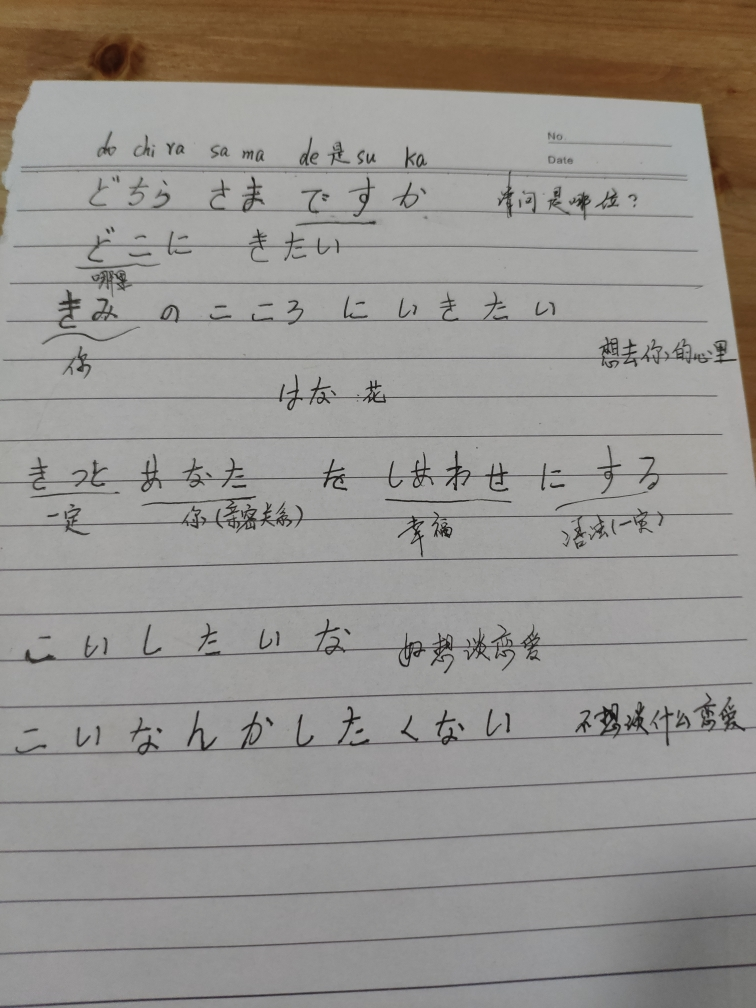 No.
do chi ra sa ma de是su ka
Date
どちら さま ですか 请问是哪位?
どこに きたい
哪里
きみ の こころ に い き た い
你 想去你的心里
はな 花
きっと あなた を しあわせ に する
一定 你(亲密关系) 幸福 语法(一定)
こ い し た い な 好想谈恋爱
こ い な ん か し た く な い 不想谈什么恋爱